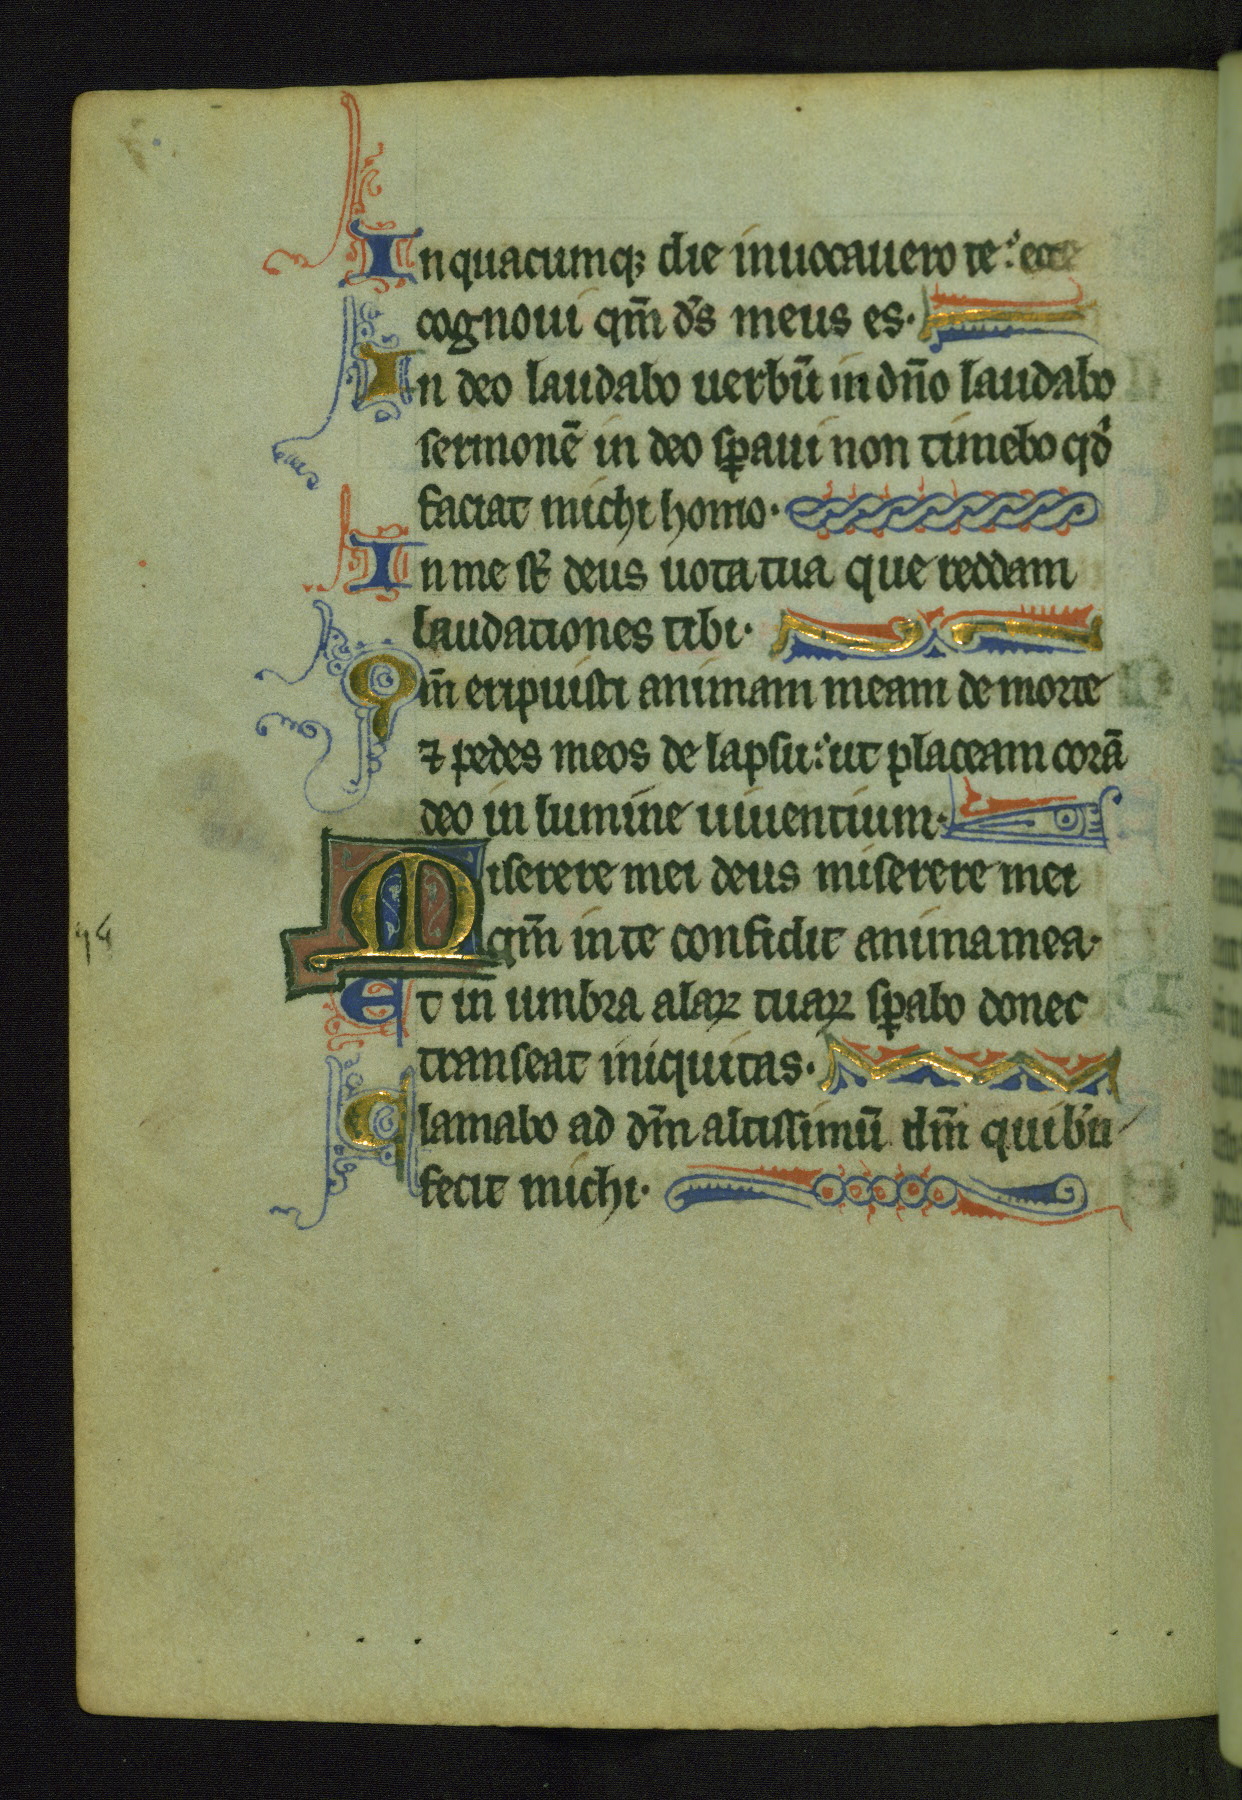 In quacumqꝫ die inuocauero te: ecce
cognoui qm̄ ds̄ meus es.
In deo laudabo uerbū in dn̄o laudabo
sermonē in deo sꝑaui non timebo qd̓
faciat michi homo.
In me st̄ deus uota tua que reddam
laudationes tibi.
Qm̄ eripuisti animam meam de morte
⁊ pedes meos de lapsu: ut placeam corā
deo in lumine uiuentium.
Miserere mei deus miserere mei
qm̄ in te confidit anima mea.
Et in umbra alaꝝ tuaꝝ sꝑabo donec
transeat iniquitas.
Clamabo ad dm̄ altissimū dm̄ qui bn̄
fecit michi.